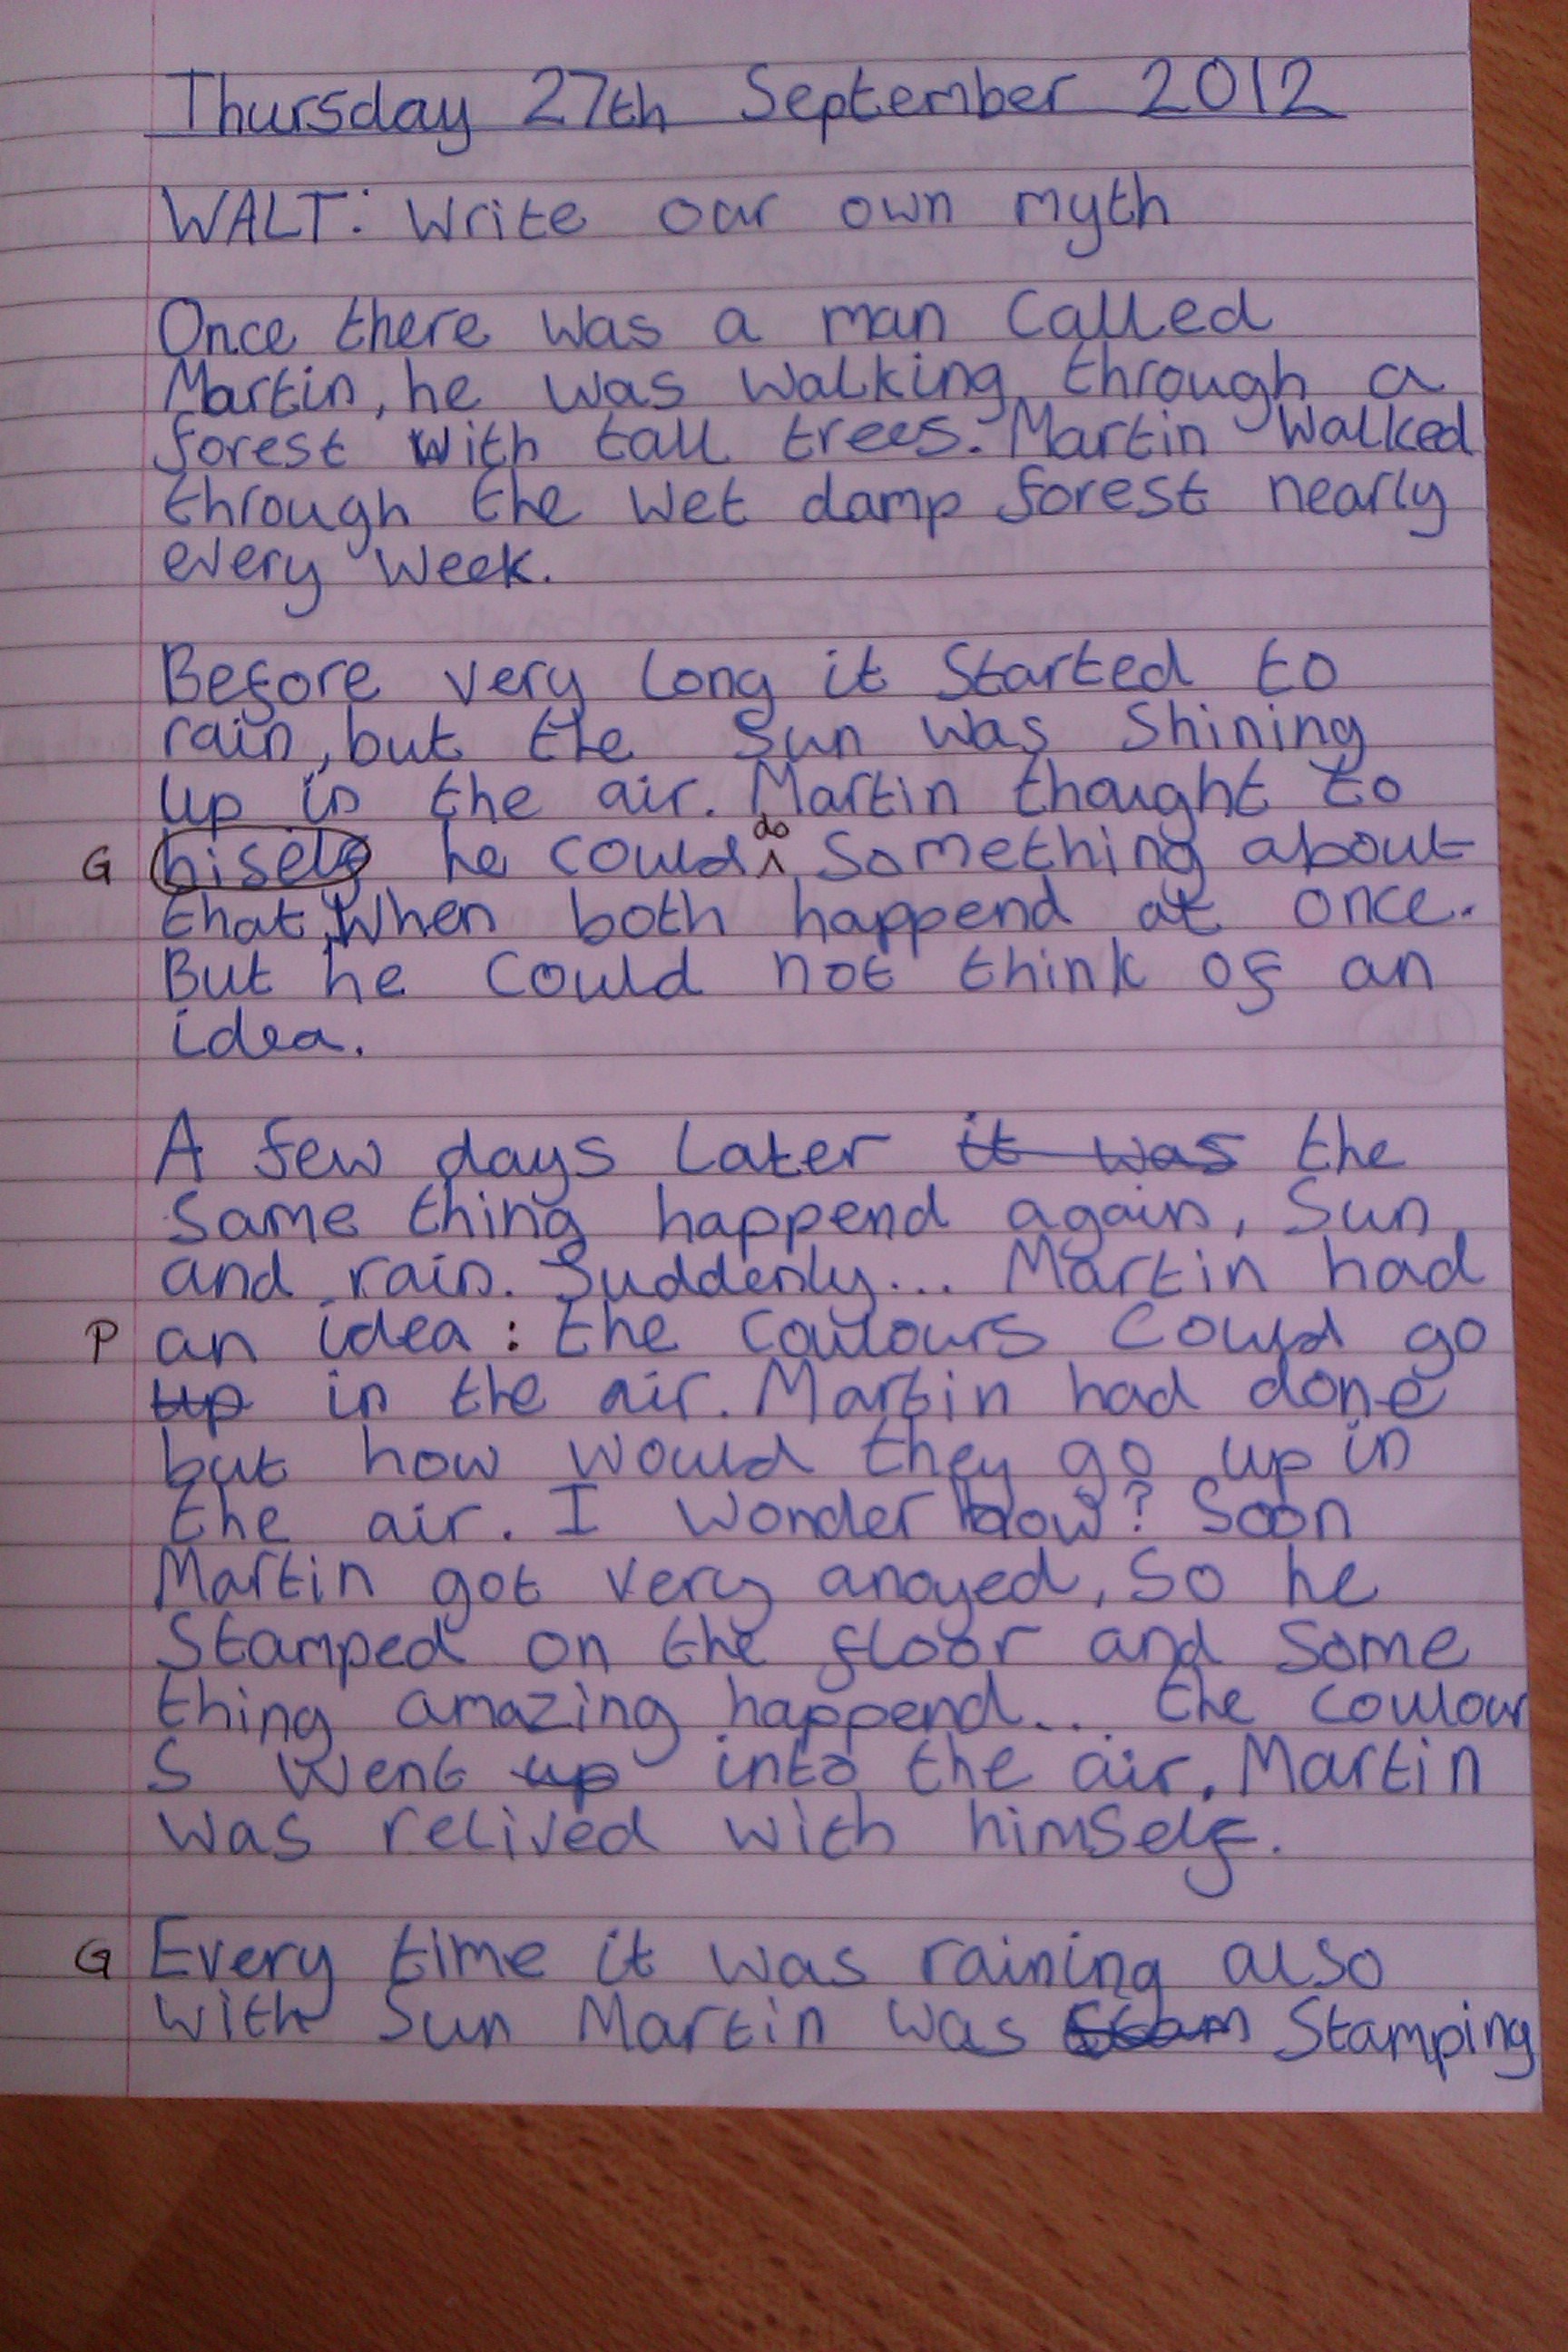 Thursday 27th September 2012
WALT: Write our own myth
Once there was a man called
Martin, he was walking through a
forest with tall trees. Martin walked
through the wet damp forest nearly
every week.
Before very long it started to
rain, but the sun was shining
up in the air. Martin thought to
do
G hiself he could ^ something about
that, when both happend at once.
But he could not think of an
idea.
A few days later it was the
same thing happend again, sun
and rain. Suddenly... Martin had
P an idea: the coulours could go
up in the air. Martin had done
but how would they go up in
the air. I wonder how? Soon
Martin got very anoyed, so he
stamped on the floor and some
thing amazing happend... the coulour
s went up into the air. Martin
was relived with himself.
G Every time it was raining also
with sun Martin was stam stamping